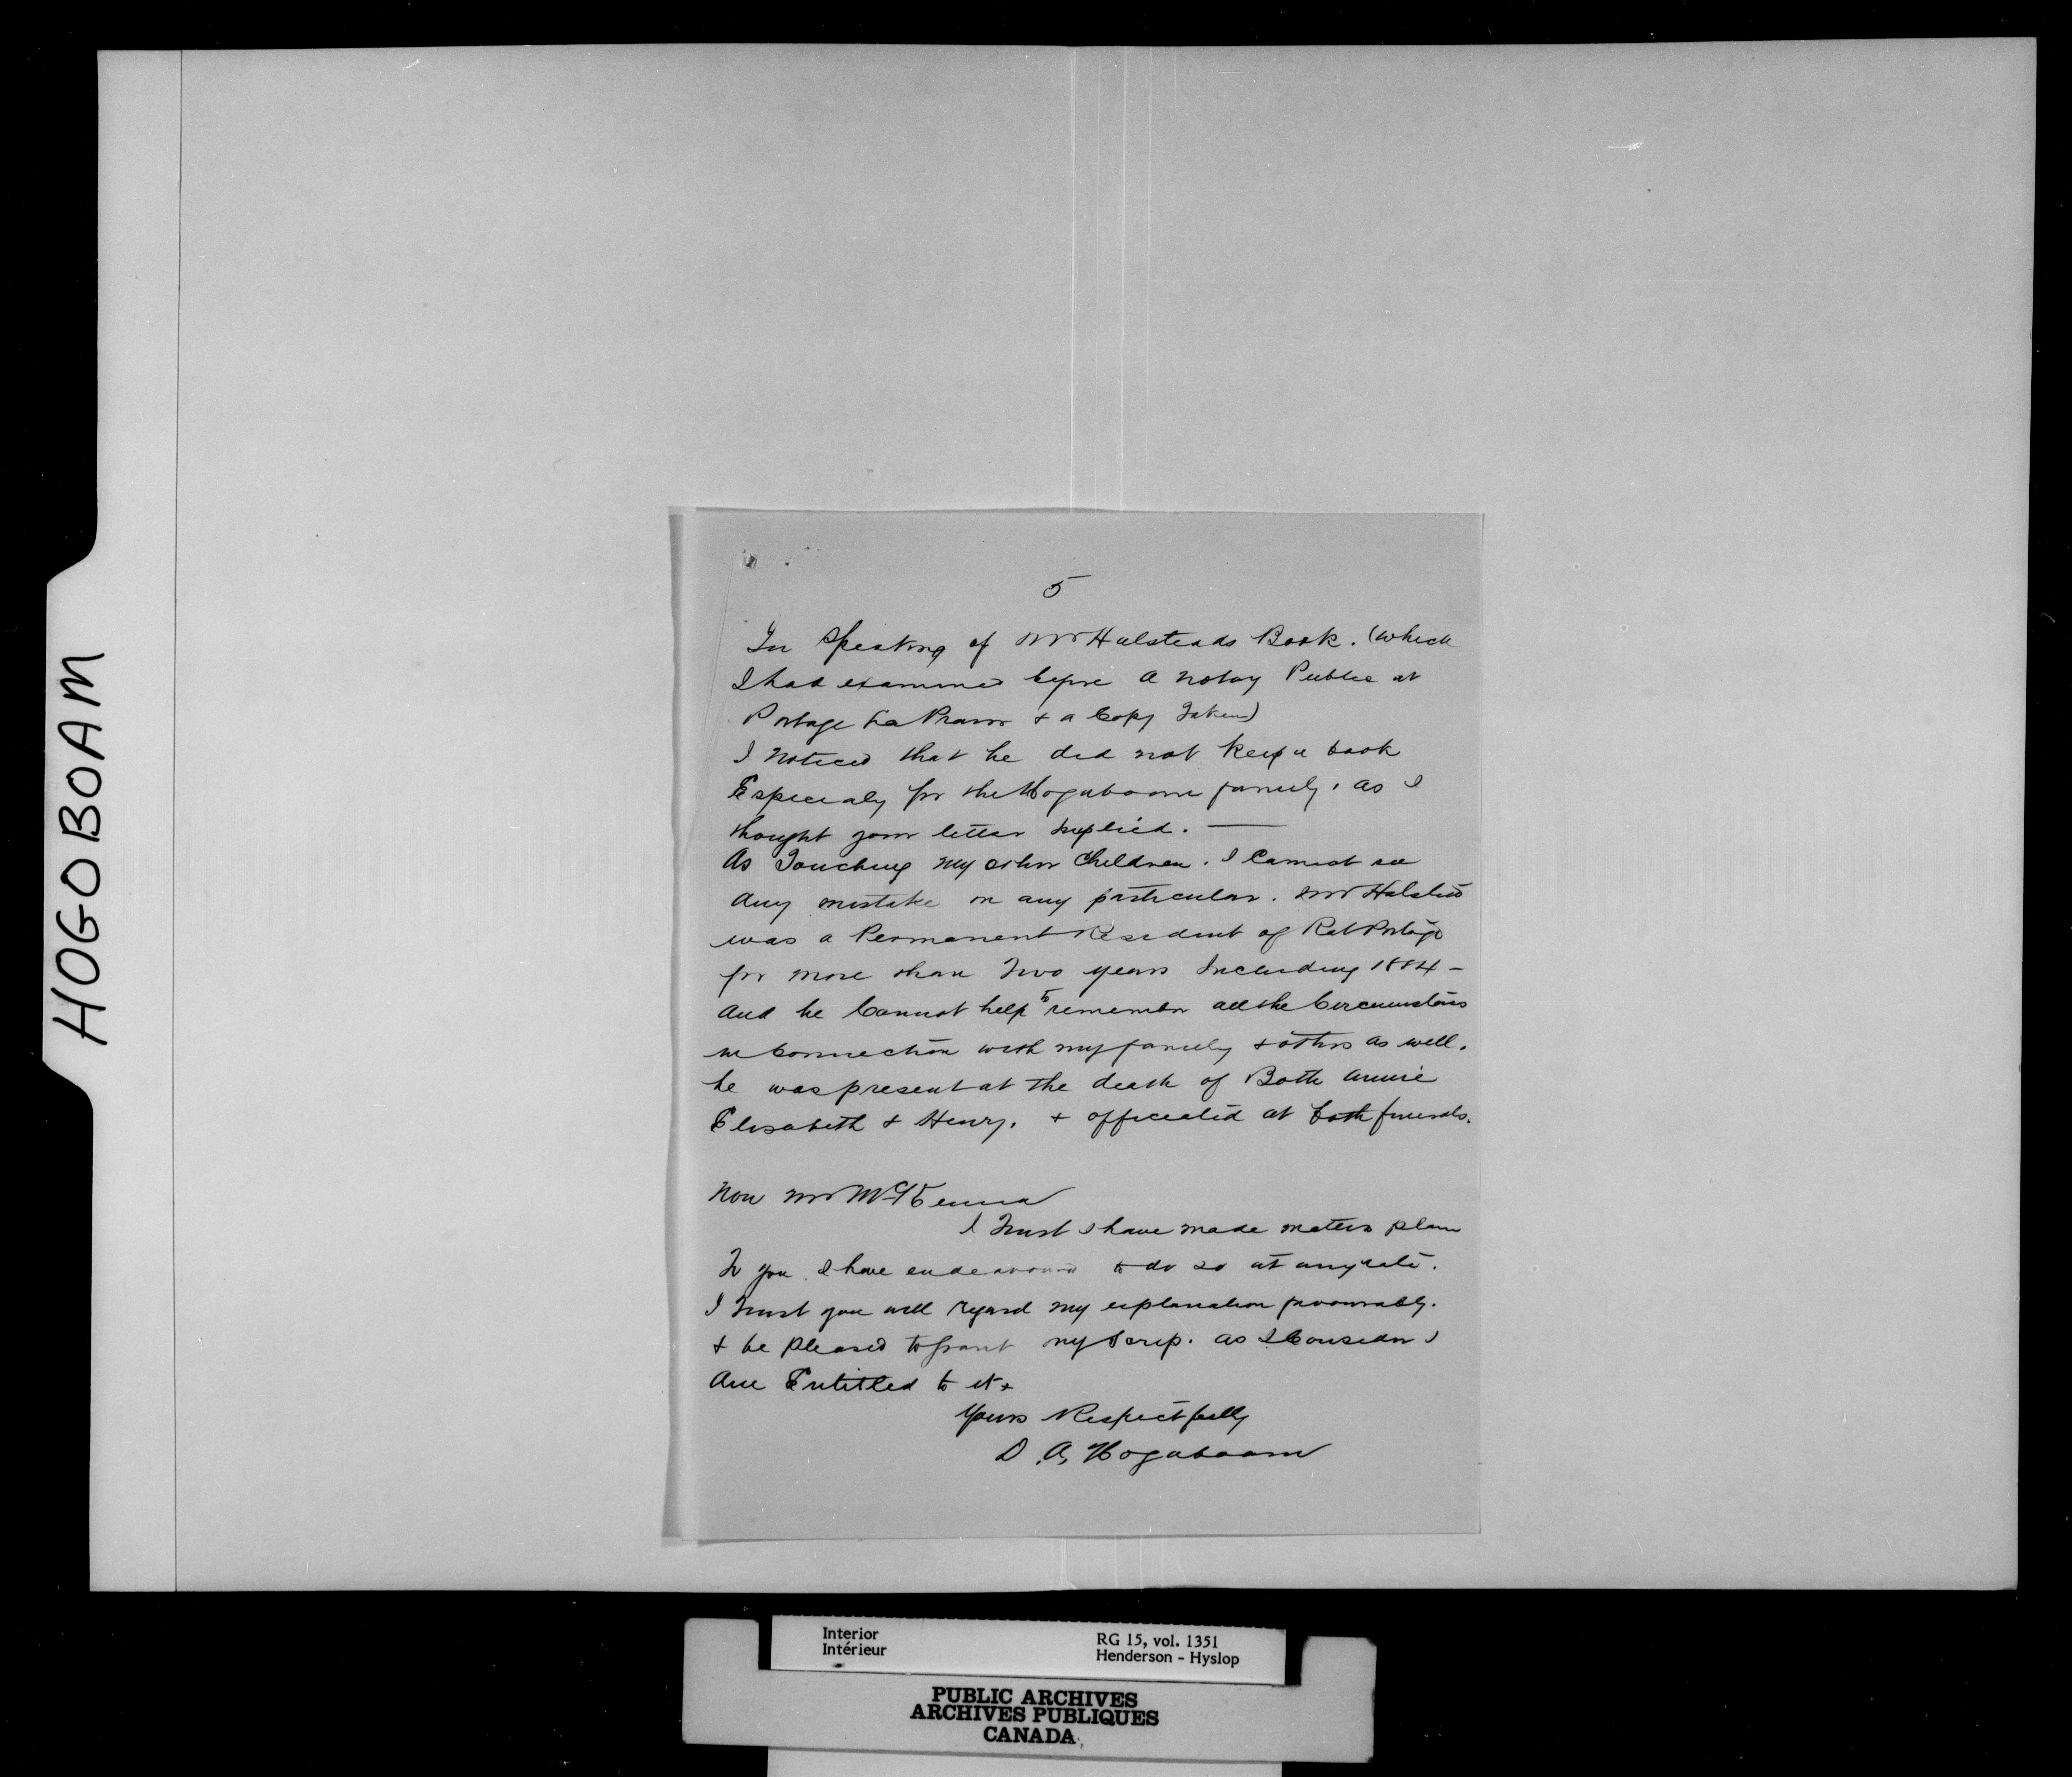 HOGOBOAM
5
In Speaking of Mr Halsteads Book. (which
I had examined before a notay Public at
Portage La Prairie & a Copy Taken)
I noticed that he did not keep a book
Especialy for the Hogaboam family. as I
thought your letter implied. —
As Touching my other Children. I Cannot see
any mistake in any particular. Mr Halsted
was a Permanent Resident of Rat Portage
for more than Two years Including 1884 —
and he Cannot help to remember all the Circumstans
in Connection with my family & others as well.
he was present at the death of Both Annie
Elisabeth & Henry. & officiated at both funerals.
Now Mr McKenna
I Trust I have made maters plain
To you. I have endeavoured to do so at any rate.
I Trust you will regard my explanation favourably.
& be pleased to grant my Scrip. as I Consider I
Am Entitled to it.
Yours Respectfully
D. A. Hogaboam
Interior
Intérieur
RG 15, vol. 1351
Henderson - Hyslop
PUBLIC ARCHIVES
ARCHIVES PUBLIQUES
CANADA